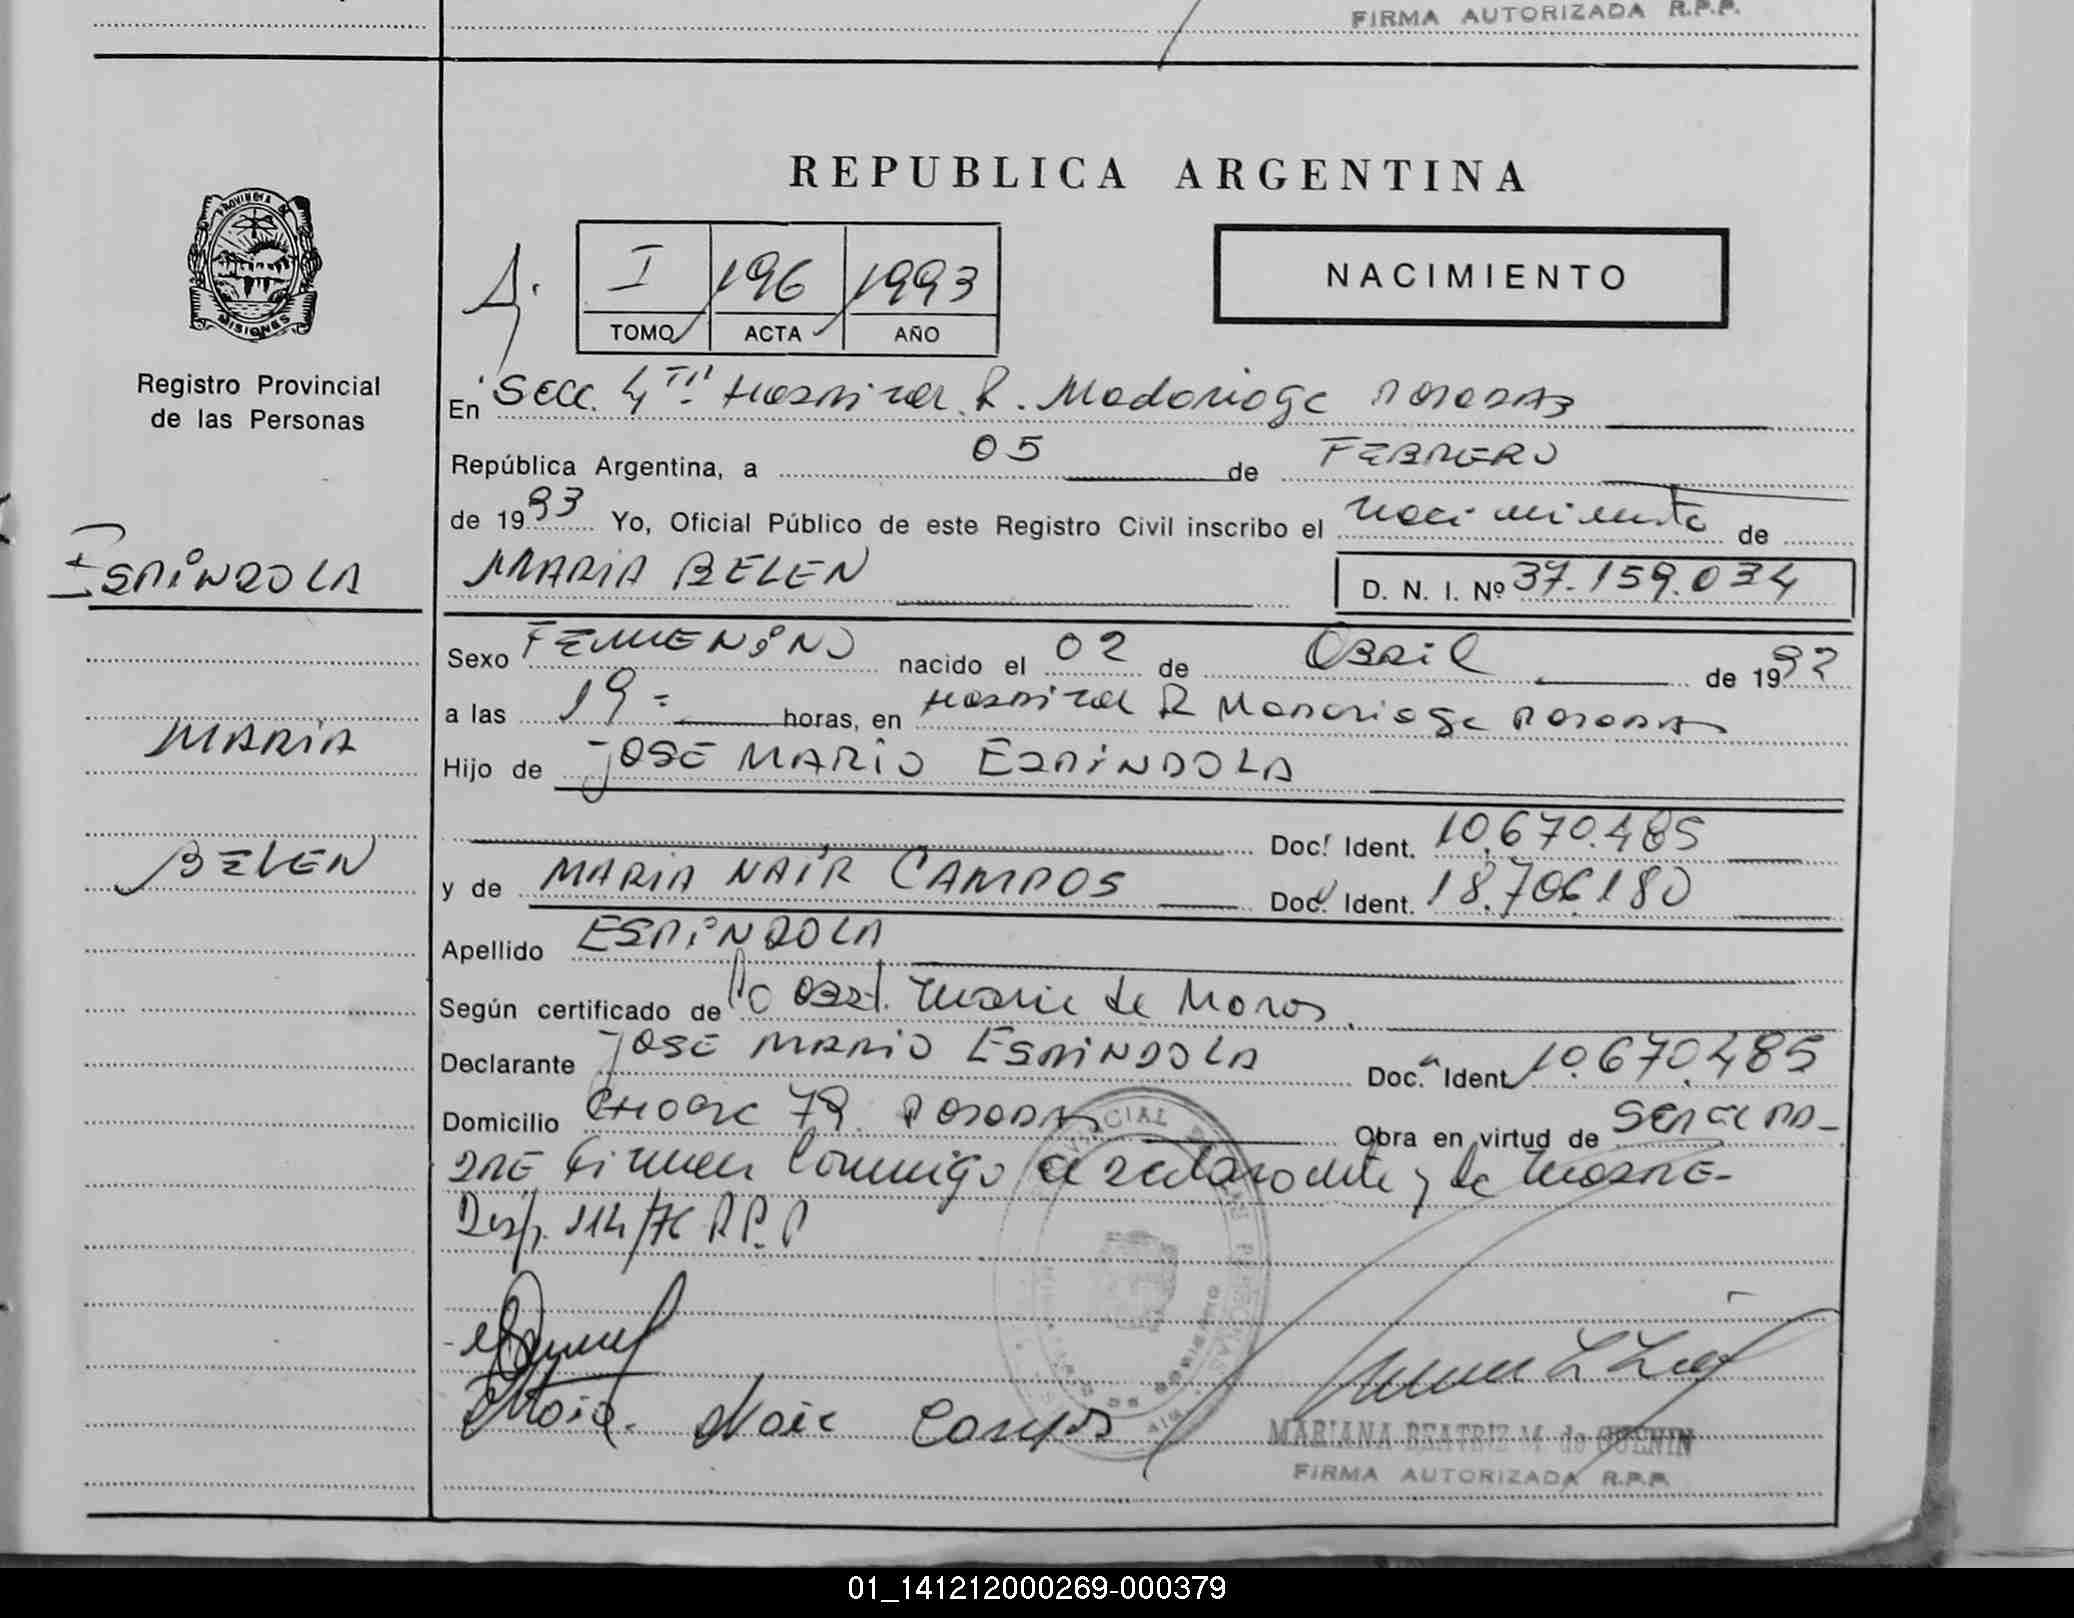 FIRMA AUTORIZADA R.P.P.
REPUBLICA ARGENTINA
PROVINCIA DE
MISIONES
I 196 1993
TOMO ACTA AÑO
NACIMIENTO
Registro Provincial
de las Personas
En Secc. 4ta Hospital R. Madariaga POSADAS
República Argentina, a 05 de FEBRERO
de 1993 Yo, Oficial Público de este Registro Civil inscribo el nacimiento de
ESPINDOLA
MARIA BELEN D. N. I. Nº 37.159.034
Sexo FEMENINO nacido el 02 de Abril de 1992
a las 19 = horas, en Hospital R Madariaga POSADAS
MARIA
Hijo de JOSE MARIO ESPINDOLA
Doc. Ident. 10.670.485
BELEN
y de MARIA NAIR CAMPOS Doc. Ident. 18.706.180
Apellido ESPINDOLA
Según certificado de Obst. Maria de Moros
Declarante JOSE MARIO ESPINDOLA Doc. Ident. 10.670.485
Domicilio 79 POSADAS Obra en virtud de SER EL PA-
DRE Firman conmigo el declarante y la MADRE-
Disp. 114/76 R.P.P
Maria Nair Campos
MARIANA BEATRIZ M. de GUENIN
FIRMA AUTORIZADA R.P.P.
01_141212000269-000379